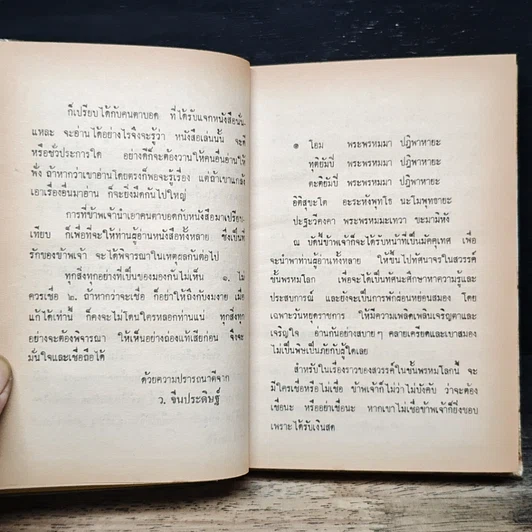 ก็เปรียบได้กับคนตาบอด ที่ได้รับแจกหนังสือนั่น
แหละ จะอ่านได้อย่างไรจึงจะรู้ว่า หนังสือเล่มนั้น จะดี
หรือชั่วประการใด อย่างดีก็จะต้องวานให้คนอื่นอ่านให้
ฟัง ถ้าหากว่าเขาอ่านโดยตรงก็พอจะรู้เรื่อง แต่ถ้าเขาแกล้ง
เอาเรื่องอื่นมาอ่าน ก็จะยิ่งมืดกันไปใหญ่
การที่ข้าพเจ้านำเอาคนตาบอดกับหนังสือมาเปรียบ
เทียบ ก็เพื่อที่จะให้ท่านผู้อ่านหนังสือทั้งหลาย ซึ่งเป็นที่
รักของข้าพเจ้า จะได้พิจารณาในเหตุผลกันต่อไป
ทุกสิ่งทุกอย่างที่เป็นของมองกันไม่เห็น ๑. ไม่
ควรเชื่อ ๒. ถ้าหากว่าจะเชื่อ ก็อย่าให้ถึงกับงมงาย เมื่อ
แก้ได้เท่านี้ ก็คงจะไม่โดนใครหลอกท่านแน่ ทุกสิ่งทุก
อย่างจะต้องพิจารณา ให้เห็นอย่างถ่องแท้เสียก่อน จึงจะ
มั่นใจและเชื่อถือได้
ด้วยความปรารถนาดีจาก
ว. จีนประดิษฐ์
๑ โอม พระพรหมมา ปฏิพาหายะ
ทุติยัมปิ พระพรหมมา ปฏิพาหายะ
ตะติยัมปิ พระพรหมมา ปฏิพาหายะ
อิติสุขะโต อะระหังพุทโธ นะโมพุทธายะ
ปะฐะวีคงคา พระพรหมมะเทวา ขะมามิหัง
ณ บัดนี้ข้าพเจ้าก็จะได้รับหน้าที่เป็นมัคคุเทศ เพื่อ
จะนำพาท่านผู้อ่านทั้งหลาย ให้ขึ้นไปทัศนาจรในสวรรค์
ชั้นพรหมโลก เพื่อจะได้เป็นทัศนะศึกษาหาความรู้และ
ประสบการณ์ และยังจะเป็นการพักผ่อนหย่อนสมอง โดย
เฉพาะวันหยุดราชการ ให้มีความเพลิดเพลินเจริญตาและ
เจริญใจ อ่านกันอย่างสบาย ๆ คลายเครียดและเบาสมอง
ไม่เป็นพิษเป็นภัยกับผู้ใดเลย
สำหรับในเรื่องราวของสวรรค์ในชั้นพรหมโลกนี้ จะ
มีใครเชื่อหรือไม่เชื่อ ข้าพเจ้าก็ไม่ว่าไม่บังคับ ว่าจะต้อง
เชื่อนะ หรืออย่าเชื่อนะ หากเขาไม่เชื่อข้าพเจ้าก็ยิ่งชอบ
เพราะได้รับเงินสด